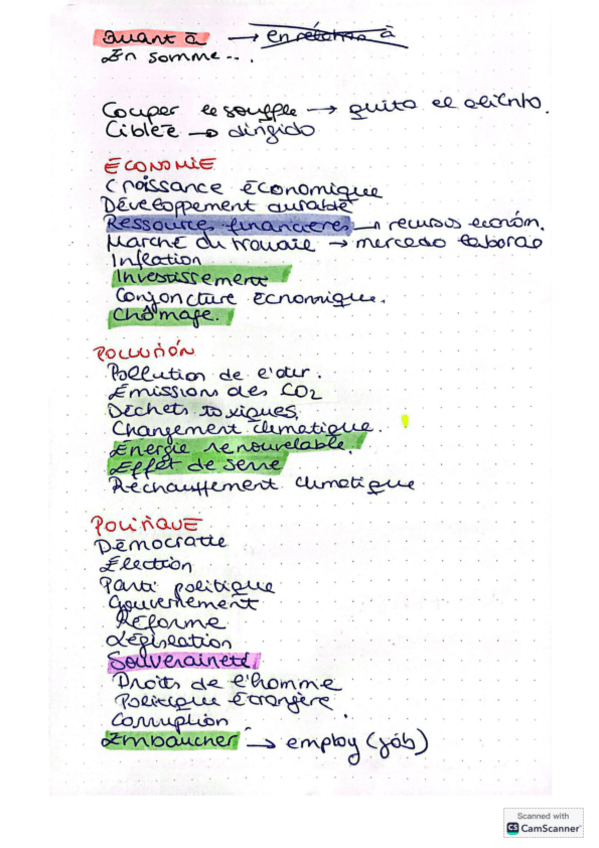 Quant à → en rélation à
En somme...
Couper le souffle → quita el aliento.
Ciblée → dirigido
ÉCONOMIE
Croissance économique
Développement durable
Ressources financières → recursos económ.
Marché du travaile → mercado laborao
Inflation
Investissement
Conjoncture écnomique.
Chômage.
POLLUTIÓN
Pollution de l'air.
Émissions des CO2
Déchets toxiques.
Changement climatique.
Énergie renouvelable.
Effet de serre
Réchauffement climatique
POLITIQUE
Démocratie
Élection
Parti politique
Gouvernement
Réforme
Législation
Souveraineté
Droits de l'homme
Politique étrangère
Corruption
Embaucher → employ (job)
Scanned with
CS CamScanner